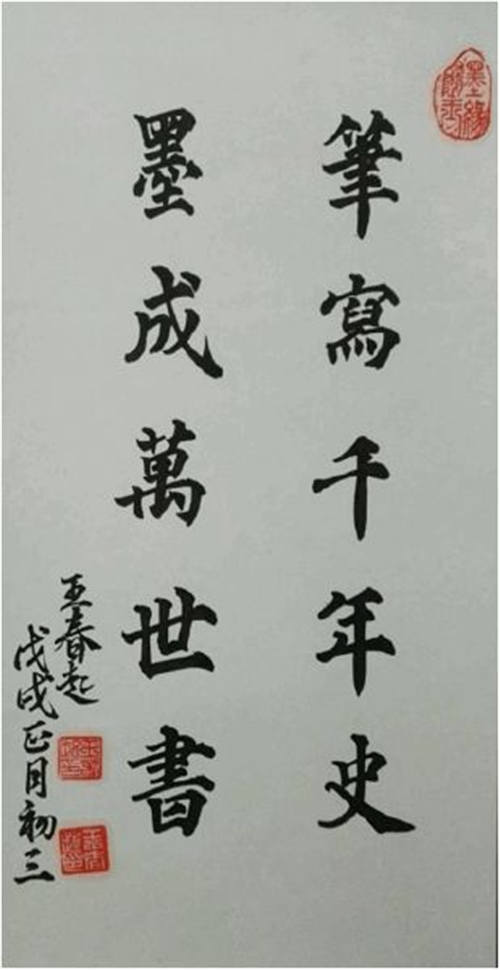 筆寫千年史
墨成萬世書
王春起
戊戌正月初三